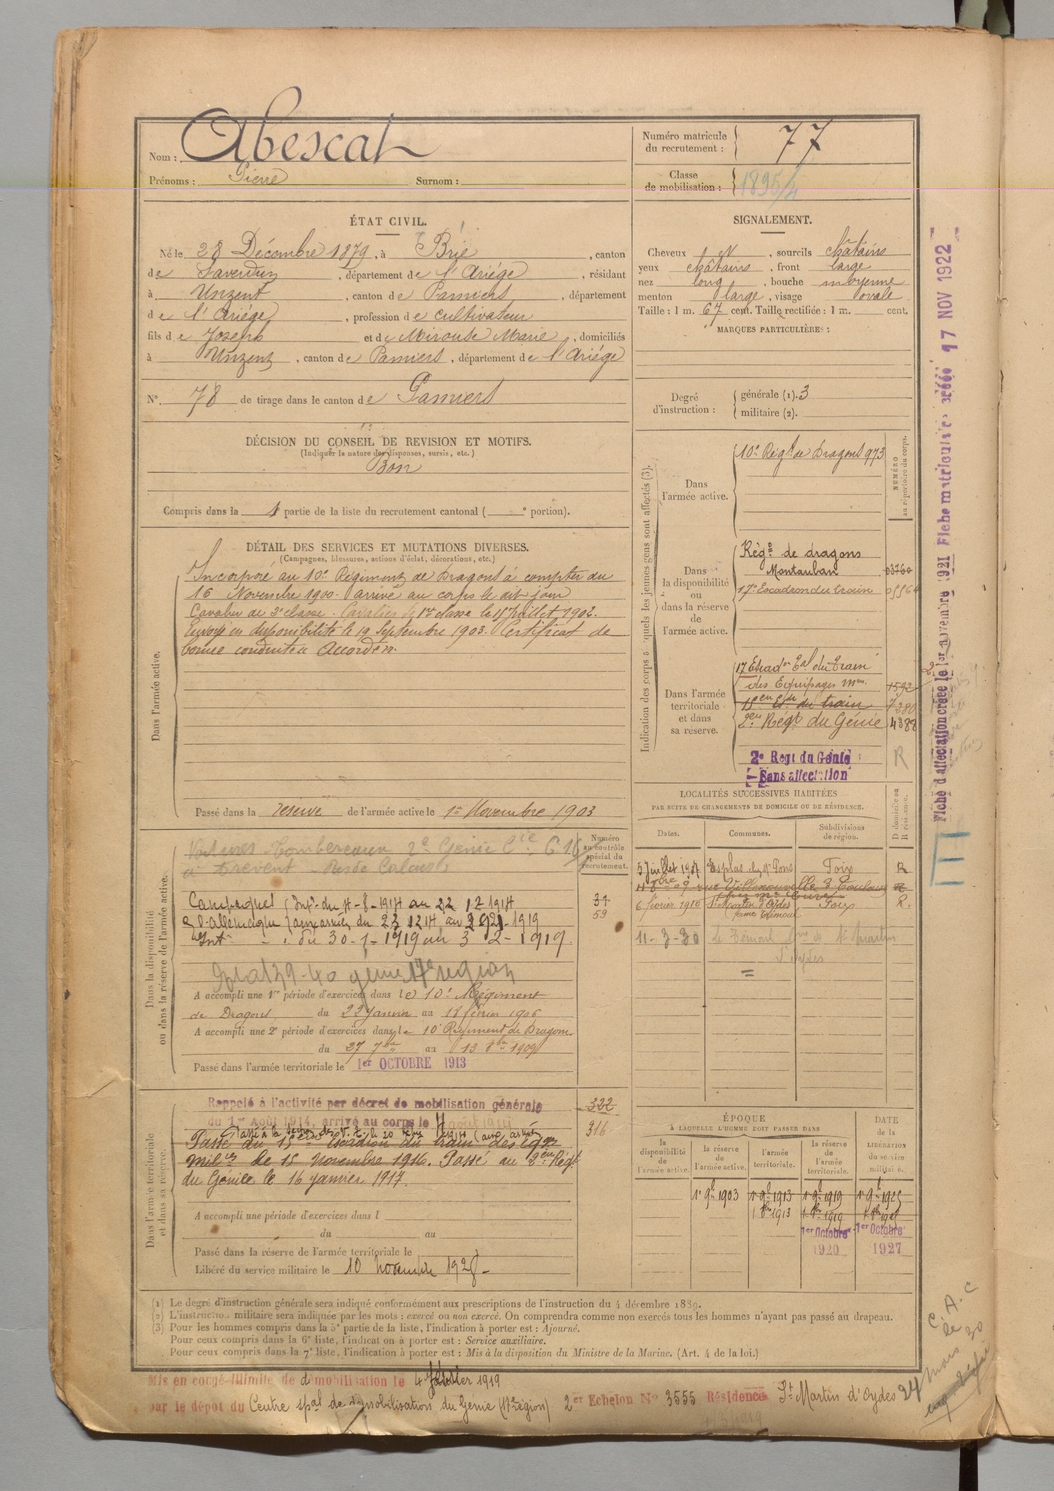 Nom : Abescat
Prénoms : Pierre Surnom :
Numéro matricule du recrutement : 77
Classe de mobilisation : 1895/4
ÉTAT CIVIL.
Né le 28 Décembre 1879, à Brie, canton
de Saverdun, département de l'Ariége, résidant
à Unzent, canton de Pamiers, département
de l'Ariége, profession de cultivateur
fils de Joseph et de Mirouse Marie, domiciliés
à Unzent, canton de Pamiers, département de l'Ariége
N° 78 de tirage dans le canton de Pamiers
SIGNALEMENT.
Cheveux N, sourcils châtains
yeux châtains, front large
nez long, bouche moyenne
menton large, visage ovale
Taille : 1 m. 67 cent. Taille rectifiée : 1 m. cent.
MARQUES PARTICULIÈRES :
Degré d'instruction : générale (1). 3
militaire (2).
DÉCISION DU CONSEIL DE REVISION ET MOTIFS.
(Indiquer la nature des dispenses, sursis, etc.)
Bon
Compris dans la 1 partie de la liste du recrutement cantonal ( e portion).
DÉTAIL DES SERVICES ET MUTATIONS DIVERSES.
(Campagnes, blessures, actions d'éclat, décorations, etc.)
Dans l'armée active.
Incorporé au 10e Régiment de Dragons à compter du
16 Novembre 1900. arrivé au corps le dit jour
Cavalier de 2e classe. Cavalier de 1re classe le 15 Juillet 1902.
Envoyé en disponibilité le 19 Septembre 1903. Certificat de
bonne conduite Accordé
Passé dans la réserve de l'armée active le 1er Novembre 1903
Indication des corps auxquels les jeunes gens sont affectés (3).
NUMÉRO au répertoire du corps.
Dans l'armée active.
10e Régt de Dragons 973
Dans la disponibilité ou dans la réserve de l'armée active.
Régt de dragons
Montauban
17e Escadron du train
Dans l'armée territoriale et dans sa réserve.
17 Escadon Eal du Train
des Equipages mres
18e Esc du train
2e Régt du Génie 4388
2e Regt du Génie
Sans affectation
R
LOCALITÉS SUCCESSIVES HABITÉES
PAR SUITE DE CHANGEMENTS DE DOMICILE OU DE RÉSIDENCE.
D domicile ou R résidence.
Dates. Communes. Subdivisions de région.
5 Juillet 1907 Esplas Foix R
rue Villenouvelle 3 Toulouse
6 février 1916 St Martin d'Oydes Foix R.
11-3-30 St Martin
d'Oydes
Dans la disponibilité ou dans la réserve de l'armée active.
Numéro au contrôle spécial du recrutement.
Voitures Tombereaux 2e Génie Cie 6/16
à Frévent Pas de Calais
Campagne
c l'allemagne
du 30-1-1919 au 3 2-1919.
génie 17e region
A accompli une 1re période d'exercices dans le 10e Régiment
de Dragons du 22 Janvier au 17 février 1906
A accompli une 2e période d'exercices dans le 10e Régiment de Dragons
du 27 7bre au 13 8bre 1909
Passé dans l'armée territoriale le 1er OCTOBRE 1913
Dans l'armée territoriale et dans sa réserve.
Rappelé à l'activité par décret de mobilisation générale
du 1er Août 1914, arrivé au corps le
322
316
milres le 15 novembre 1916. Passé au 2eme Régt
du Génie le 16 janvier 1917.
A accompli une période d'exercices dans l
du au
Passé dans la réserve de l'armée territoriale le
Libéré du service militaire le 10 novembre 1928
ÉPOQUE
A LAQUELLE L'HOMME DOIT PASSER DANS
DATE DE LA LIBÉRATION du service militaire.
la disponibilité de l'armée active. la réserve de l'armée active. l'armée territoriale. la réserve de l'armée territoriale.
1er 9bre 1903 1er 9bre 1913 1er 9bre 1919 1er 9bre 1925
1. 8bre 1913 1. 8bre 1919
1er Octobre 1920 1er Octobre 1927
(1) Le degré d'instruction générale sera indiqué conformément aux prescriptions de l'instruction du 4 décembre 1889.
(2) L'instruction militaire sera indiquée par les mots : exercé ou non exercé. On comprendra comme non exercés tous les hommes n'ayant pas passé au drapeau.
(3) Pour les hommes compris dans la 5e partie de la liste, l'indication à porter est : Ajourné.
Pour ceux compris dans la 6e liste, l'indication à porter est : Service auxiliaire.
Pour ceux compris dans la 7e liste, l'indication à porter est : Mis à la disposition du Ministre de la Marine. (Art. 4 de la loi.)
Mis en congé illimité de démobilisation le 4 février 1919
par le dépôt du Centre spal de démobilisation du Génie (17e région) 2er Echelon No 3555 Résidence St Martin d'Oydes
Fiche d'affectation créée le 1er novembre 1921 Fiche matriculaire créée 17 NOV 1922
C. A. C
le 30
24 mars